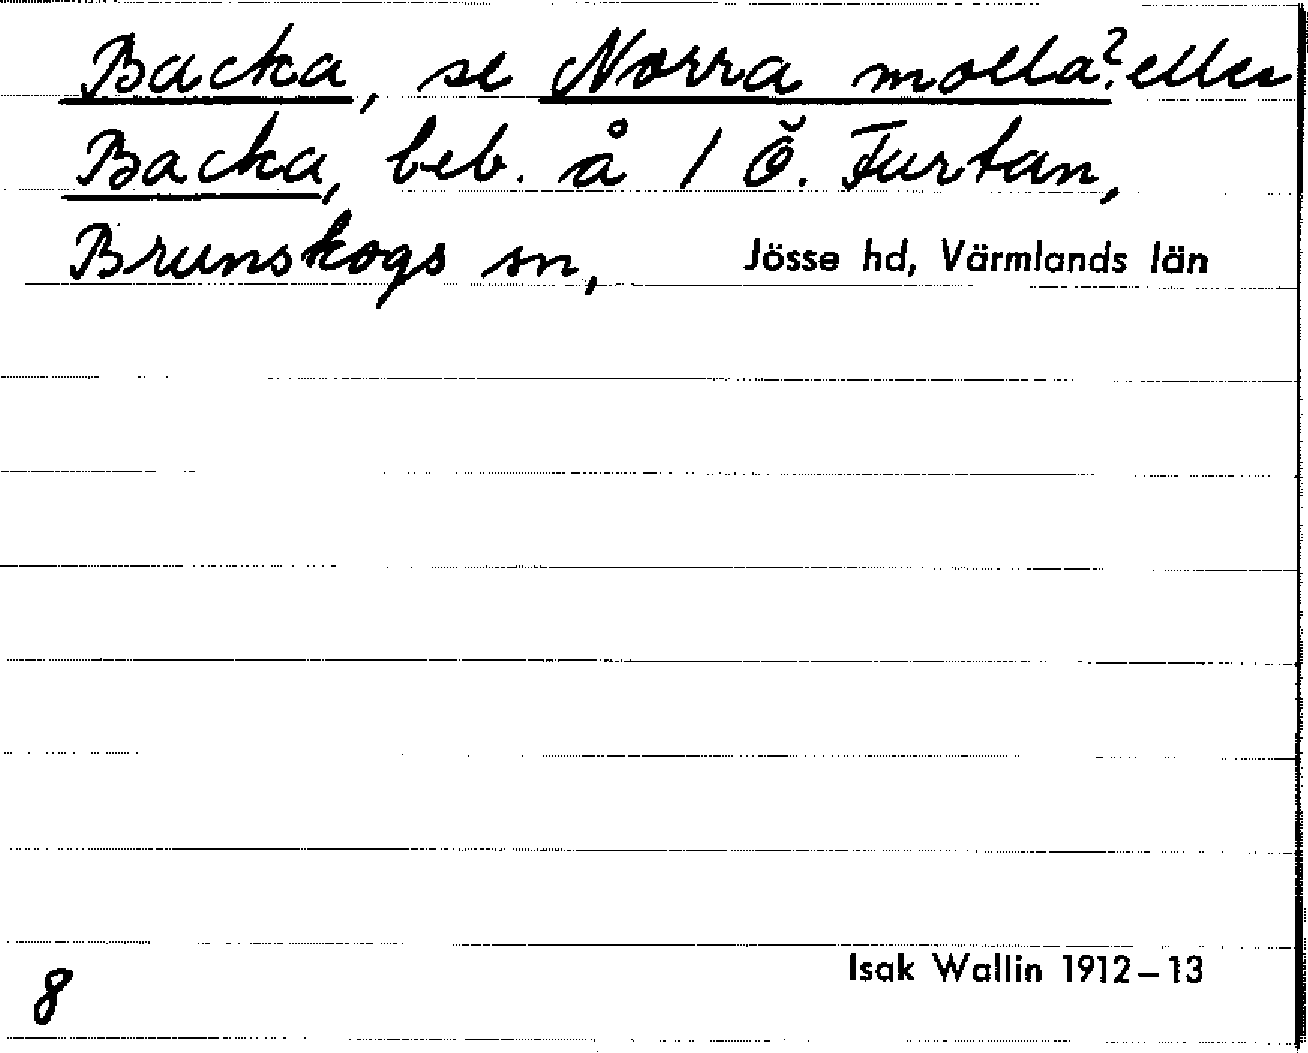 Backa, se Norra molla? eller
Backa, beb. å 1 Ö. Furtan,
Brunskogs sn, Jösse hd, Värmlands län
Isak Wallin 1912–13
8